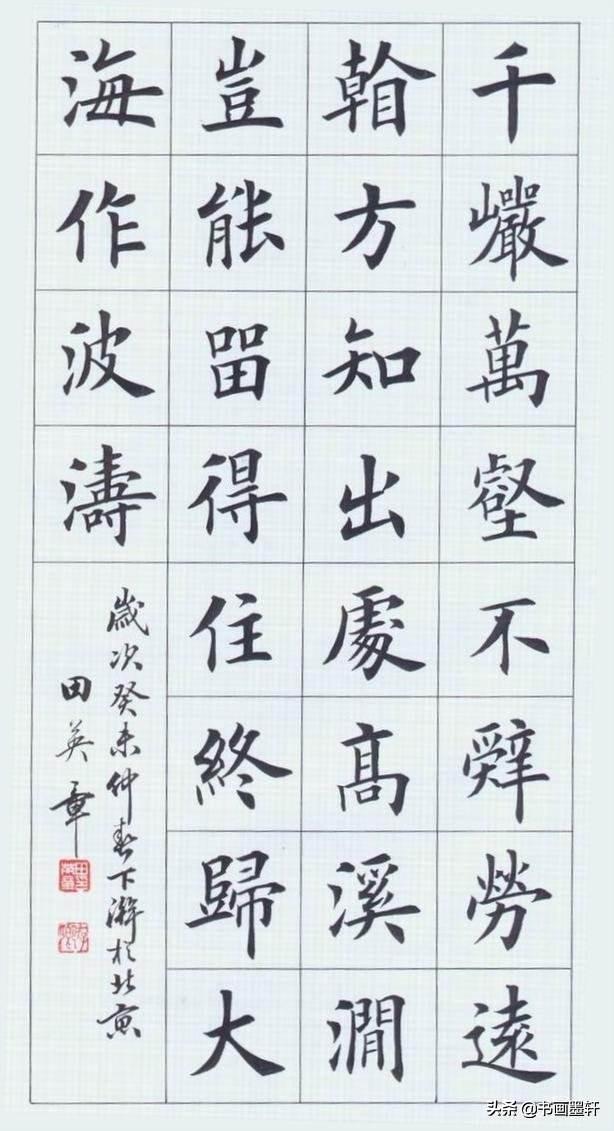 千巗萬壑不辭勞遠
看方知出處高溪澗
豈能留得住終歸大
海作波濤
歲次癸未仲春下澣於北京
田英章
头条 @书画墨轩